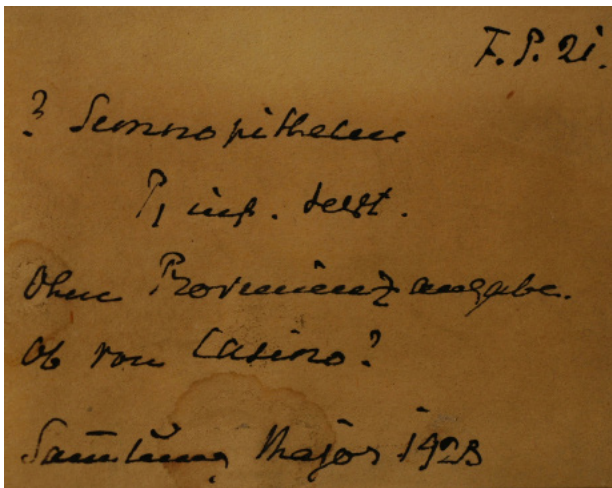 F. P. 21.
? Semnopithecus
P, inf. dext.
Ohne Provenienzangabe.
Ob von Casino?
Sammlung Major 1923